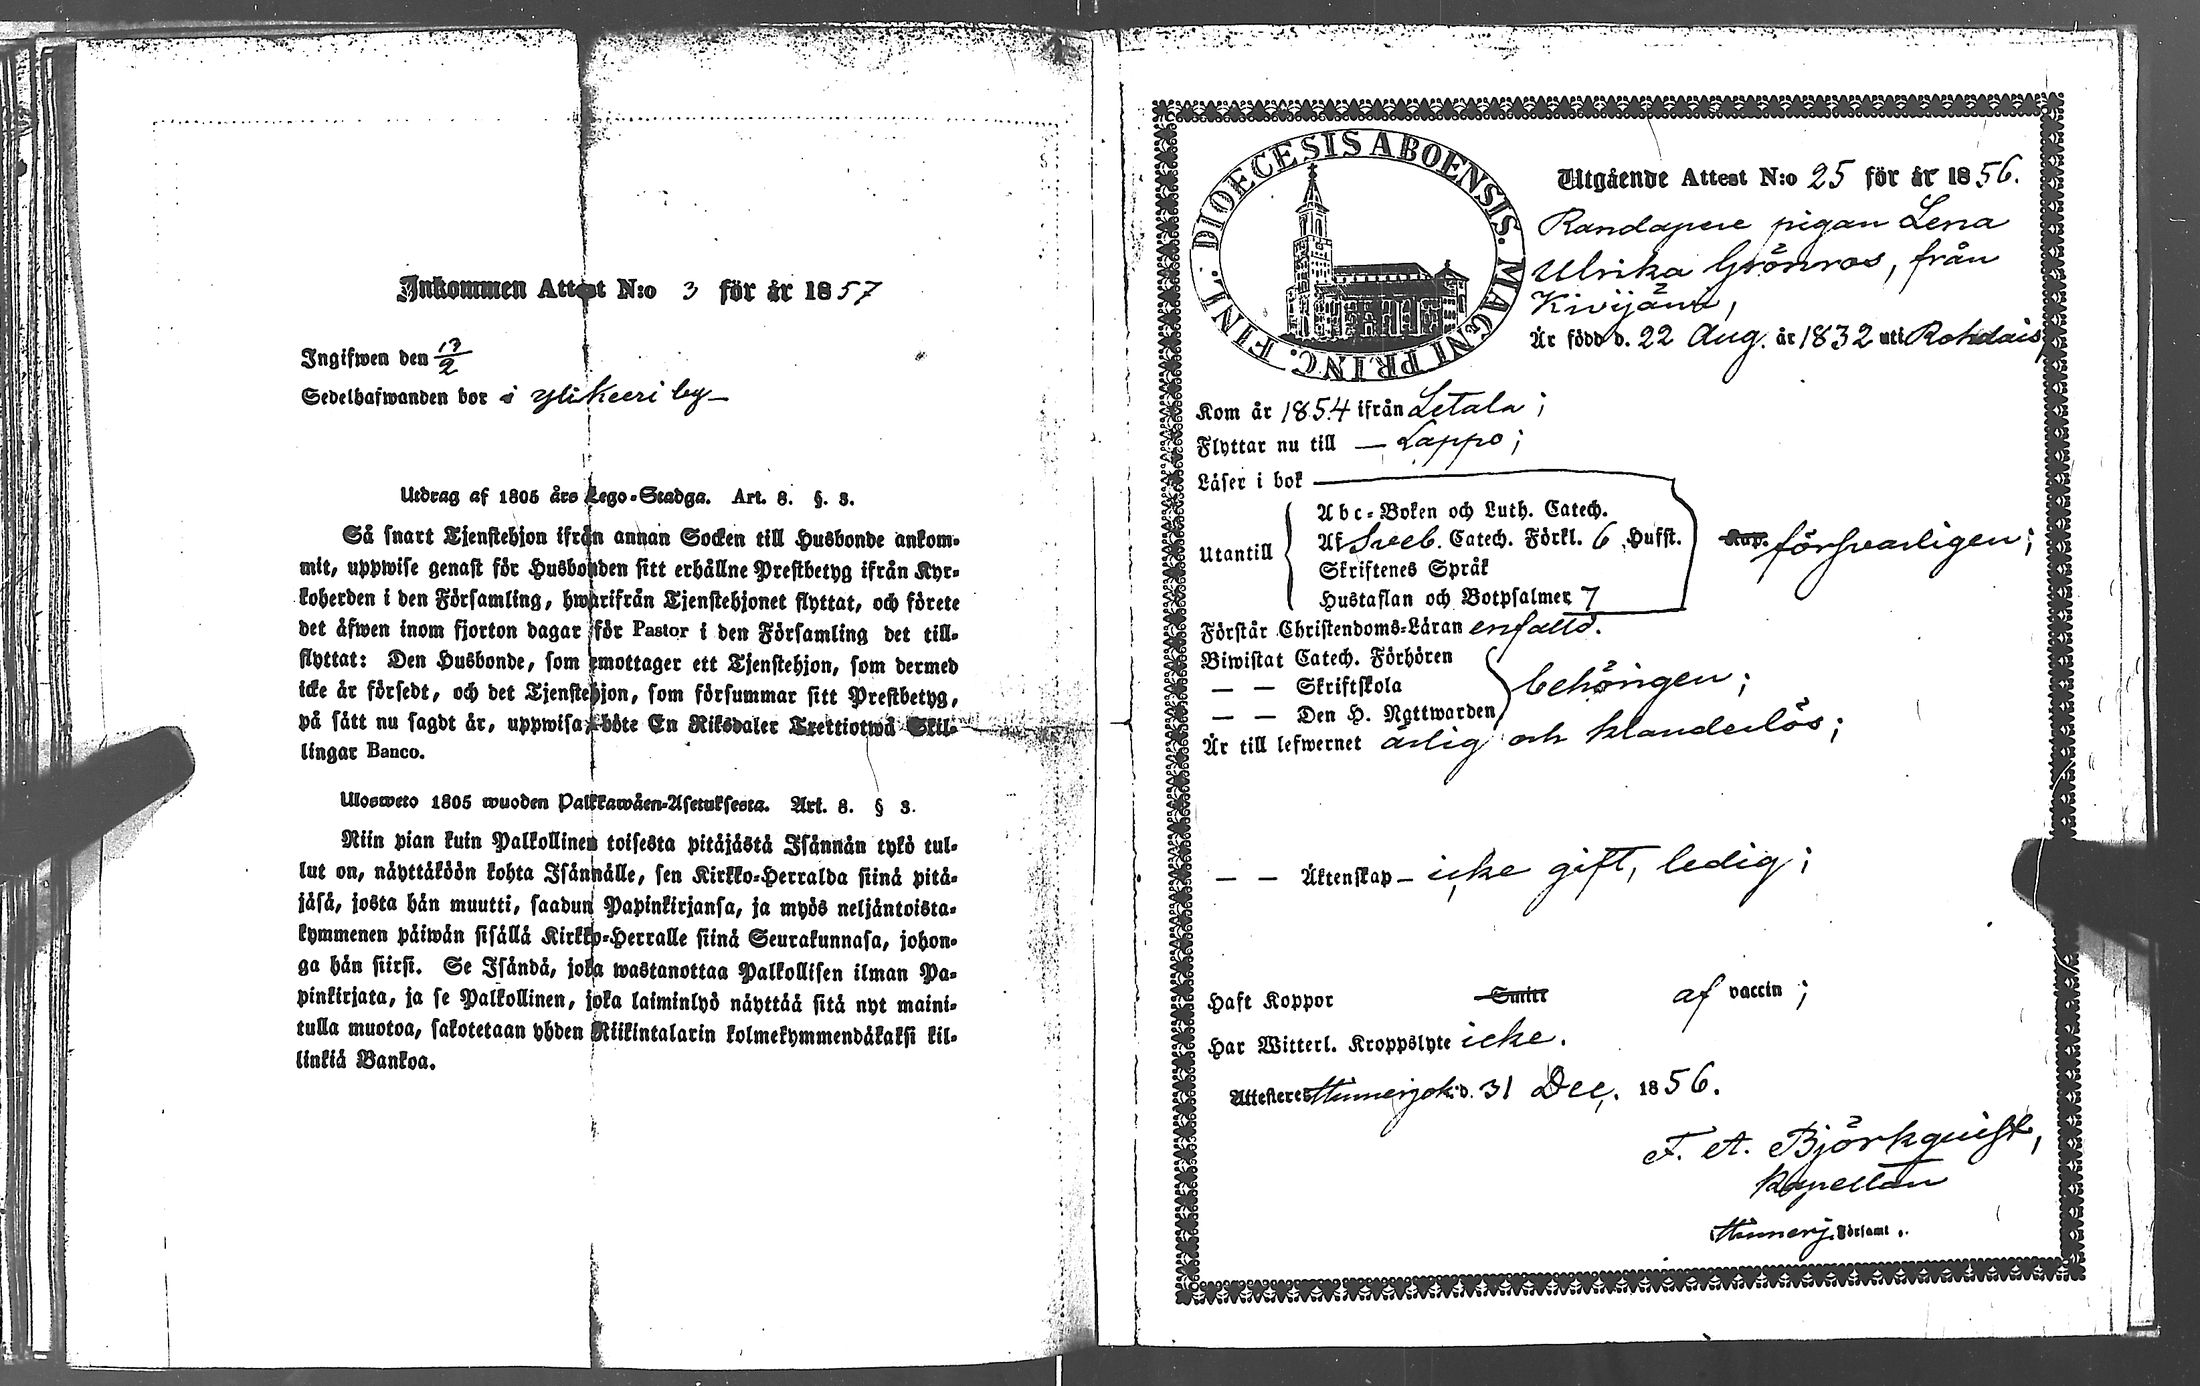 Inkommen Attest N:o 3 för år 1857
Ingifwen den 13/2
Sedelhafwanden bor i Ylikeeri by
Utdrag af 1805 års Lego-Stadga. Art. 8. §. 3.
Så snart Tjenstehjon ifrån annan Socken till Husbonde ankom-
mit, uppwise genast för Husbonden sitt erhållne Prestbetyg ifrån Kyr-
koherden i den Församling, hwarifrån Tjenstehjonet flyttat, och förete
det äfwen inom fjorton dagar för Pastor i den Församling det till-
flyttat: Den Husbonde, som emottager ett Tjenstehjon, som dermed
icke är försedt, och det Tjenstehjon, som försummar sitt Prestbetyg,
på sätt nu sagdt är, uppwisa, böte En Riksdaler Trettiotwå Skil-
lingar Banco.
Ulosweto 1805 wuoden Palkkawäen-Asetuksesta. Art. 8. § 3.
Niin pian kuin Palkollinen toisesta pitäjästä Isännän tykö tul-
lut on, näyttäköön kohta Isännälle, sen Kirkko-Herralda siinä pitä-
jäsä, josta hän muutti, saadun Papinkirjansa, ja myös neljäntoista-
kymmenen päiwän sisällä Kirkko-Herralle siinä Seurakunnasa, johon-
ga hän siirsi. Se Isändä, joka wastanottaa Palkollisen ilman Pa-
pinkirjata, ja se Palkollinen, joka laiminlyö näyttää sitä nyt maini-
tulla muotoa, sakotetaan yhden Riikintalarin kolmekymmendäkaksi kil-
linkiä Bankoa.
DIOECESIS ABOENSIS. MAGNI PRINC. FINL.
Utgående Attest N:o 25 för år 1856.
pigan Lena
Ulrika Grönroos, från
Kivijärvi,
Är född d. 22 Aug. år 1832 uti Rohdais,
Kom år 1854 ifrån Letala;
Flyttar nu till — Lappo;
Läser i bok
Utantill
Abc-Boken och Luth. Catech.
Af Sveb. Catech. Förkl. 6 Hufst. Kap. försvarligen;
Skriftenes Språk
Hustaflan och Botpsalmer 7
Förstår Christendoms-Läran enfaldt.
Biwistat Catech. Förhören
— — Skriftskola behörigen;
— — Den H. Nattwarden
Är till lefwernet ärlig och klanderlös;
— — Äktenskap — icke gift, ledig;
Haft Koppor Smitt af vaccin;
Har Witterl. Kroppslyte icke.
Attesteres Hinnerjok. d. 31 Dec. 1856.
F. A. Björkquist,
Kapellan
Hinnerj. Församl.